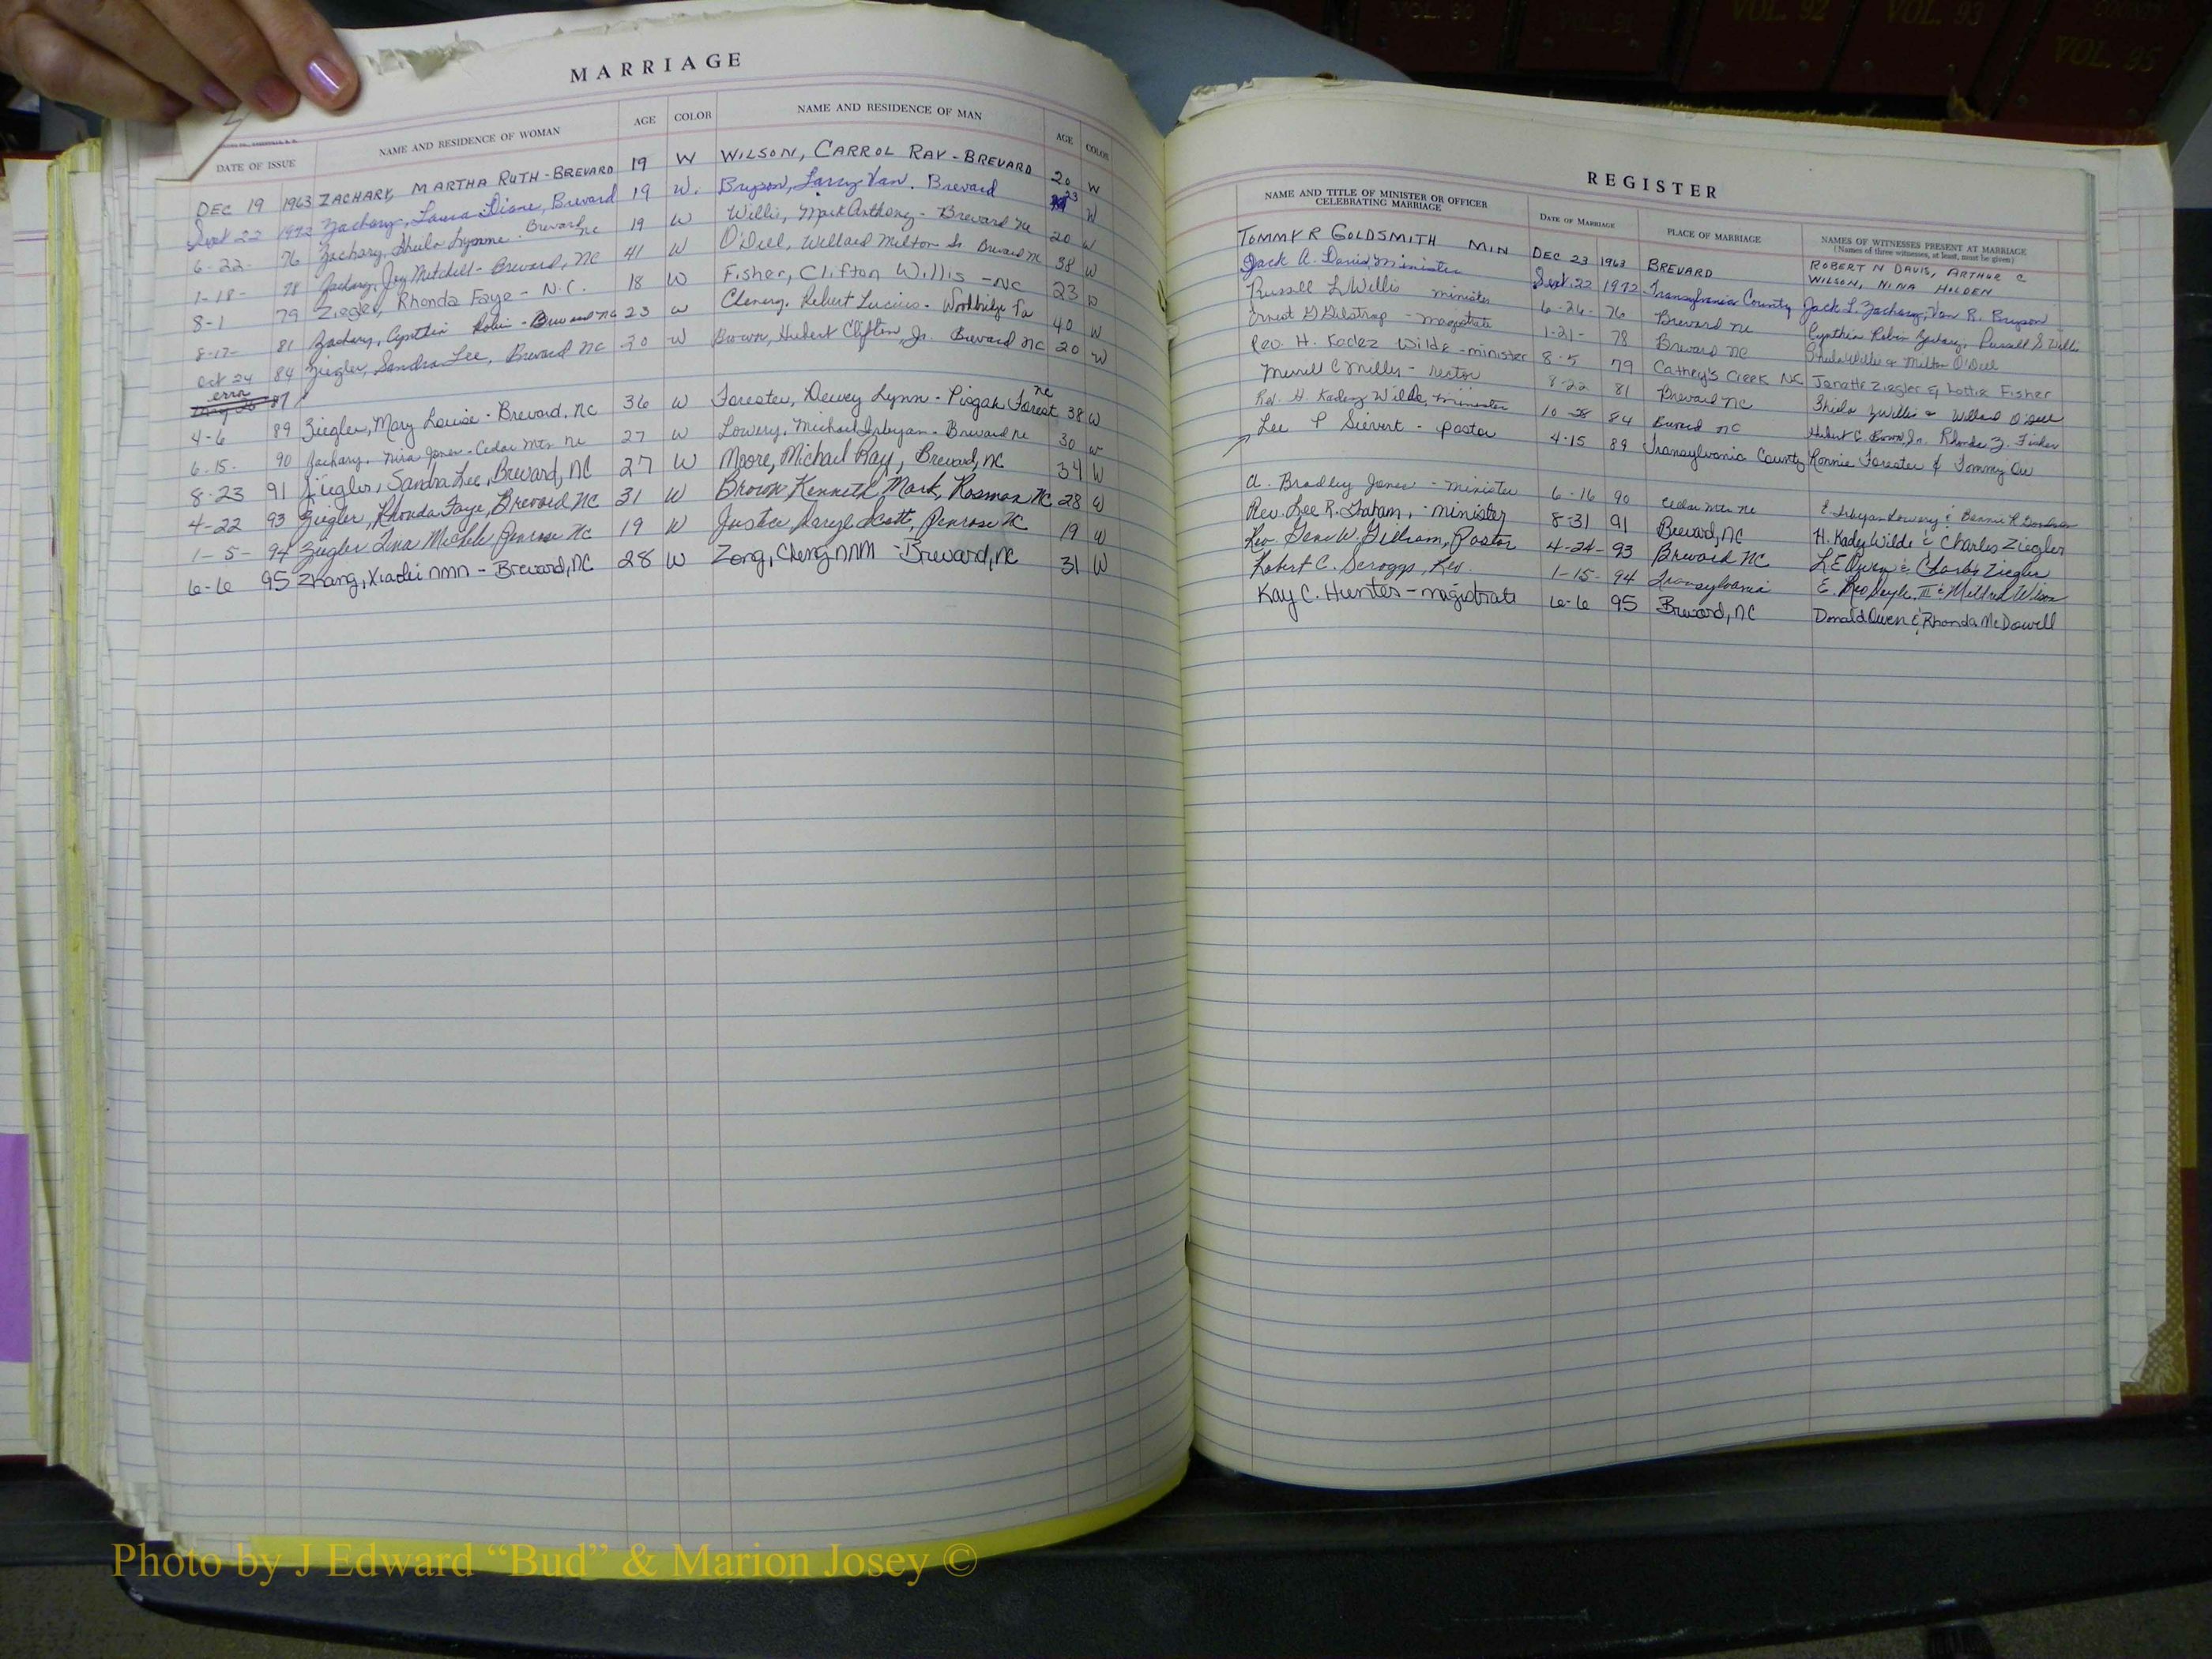 VOL. 90 VOL. 91 VOL. 92 VOL. 93 VOL. 95
MARRIAGE
DATE OF ISSUE NAME AND RESIDENCE OF WOMAN AGE COLOR NAME AND RESIDENCE OF MAN AGE COLOR
DEC 19 1963 ZACHARY, MARTHA RUTH - BREVARD 19 W WILSON, CARROL RAY - BREVARD 20 W
Sept 22 1972 Zachary, Laura Diane, Brevard 19 W. Bryson, Larry Van. Brevard 23 W
6-22- 76 Zachary, Sheila Lynne. Brevard nc 19 W Willis, Mark Anthony - Brevard nc 20 W
1-18- 78 Zachary, Joy Mitchell - Brevard, NC 41 W O'Dell, Willard Milton Sr Brevard nc 38 W
8-1 79 Ziegler, Rhonda Faye - N.C. 18 W Fisher, Clifton Willis - NC 23 W
8-17- 81 Zachary, Cynthia Robin - Brevard NC 23 W Robert Lucius - Woodbridge Va 40 W
Oct 24 84 Ziegler, Sandra Lee, Brevard NC 20 W Brown, Hubert Clifton, Jr. Brevard NC 20 W
error
87
4-6 89 Ziegler, Mary Louise - Brevard, NC 36 W Forester, Dewey Lynn - Pisgah Forest nc 38 W
6-15- 90 Zachary, Jones - Cedar Mtn nc 27 W Lowery, Michael - Brevard nc 30 W
8-23 91 Ziegler, Sandra Lee, Brevard, NC 27 W Moore, Michael Ray, Brevard, NC 34 W
4-22 93 Ziegler, Rhonda Faye, Brevard NC 31 W Brown Kenneth Mark, Rosman NC 28 W
1-5- 94 Ziegler Tina Michele Penrose NC 19 W Justice Daryl Scott, Penrose NC 19 W
6-6 95 Zhang, Xiaoli nmn - Brevard, NC 28 W Zong, Cheng nmn - Brevard, NC 31 W
REGISTER
NAME AND TITLE OF MINISTER OR OFFICER CELEBRATING MARRIAGE DATE OF MARRIAGE PLACE OF MARRIAGE NAMES OF WITNESSES PRESENT AT MARRIAGE
(Names of three witnesses, at least, must be given)
TOMMY R GOLDSMITH MIN DEC 23 1963 BREVARD ROBERT N DAVIS, ARTHUR C WILSON, NINA HOLDEN
Jack A. Davis, Minister Sept. 22 1972 Transylvania County Jack L. Zachary, Van R. Bryson
Russell L Willis minister 6-26- 76 Brevard nc Cynthia Robin Zachary, Russell S Willis
Ernest G Gilstrap - magistrate 1-21- 78 Brevard NC Sheila Willis & Milton O'Dell
Rev. H. Kadez Wilde - minister 8-5 79 Cathey's Creek NC Janette Ziegler & Lottie Fisher
Merrill C Miller - rector 8-22 81 Brevard NC Sheila Z Willis & Willard O'Dell
Rev. H. Kadez Wilde, minister 10-28 84 Brevard NC Hubert C. Brown, Jr. Rhonda Z. Fisher
Lee P Sievert - pastor 4-15 89 Transylvania County Ronnie Forester & Tommy Orr
A. Bradley Jones - minister 6-16 90 Cedar Mtn nc
Rev. Lee R. Graham, - minister 8-31 91 Brevard, NC H. Kadez Wilde & Charles Ziegler
Rev. Gene W. Gilliam, Pastor 4-24- 93 Brevard NC L E Owen & Charles Ziegler
Robert C. Scroggs, Rev. 1-15- 94 Transylvania
Kay C. Hunter - magistrate 6-6 95 Brevard, NC Donald Owen & Rhonda McDowell
Photo by J Edward “Bud” & Marion Josey ©